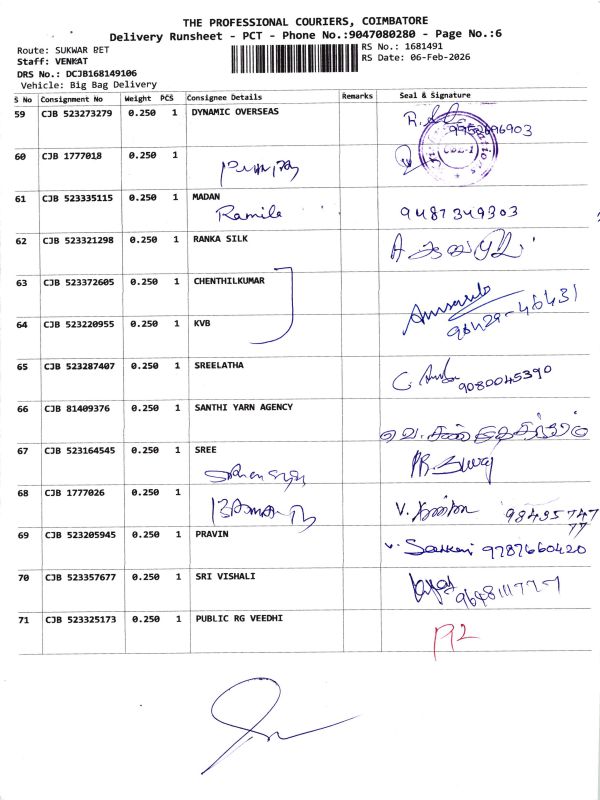 THE PROFESSIONAL COURIERS, COIMBATORE
Delivery Runsheet - PCT - Phone No.:9047080280 - Page No.:6
Route: SUKWAR PET
RS No.: 1681491
Staff: VENKAT
RS Date: 06-Feb-2026
DRS No.: DCJB168149106
Vehicle: Big Bag Delivery
S No Consignment No Weight PCS Consignee Details Remarks Seal & Signature
59 CJB 523273279 0.250 1 DYNAMIC OVERSEAS
60 CJB 1777018 0.250 1
61 CJB 523335115 0.250 1 MADAN
Ramila 9487349303
62 CJB 523321298 0.250 1 RANKA SILK
63 CJB 523372605 0.250 1 CHENTHILKUMAR
64 CJB 523220955 0.250 1 KVB
98429-46431
65 CJB 523287407 0.250 1 SREELATHA
9080045390
66 CJB 81409376 0.250 1 SANTHI YARN AGENCY
67 CJB 523164545 0.250 1 SREE
68 CJB 1777026 0.250 1
69 CJB 523205945 0.250 1 PRAVIN
9787660420
70 CJB 523357677 0.250 1 SRI VISHALI
71 CJB 523325173 0.250 1 PUBLIC RG VEEDHI